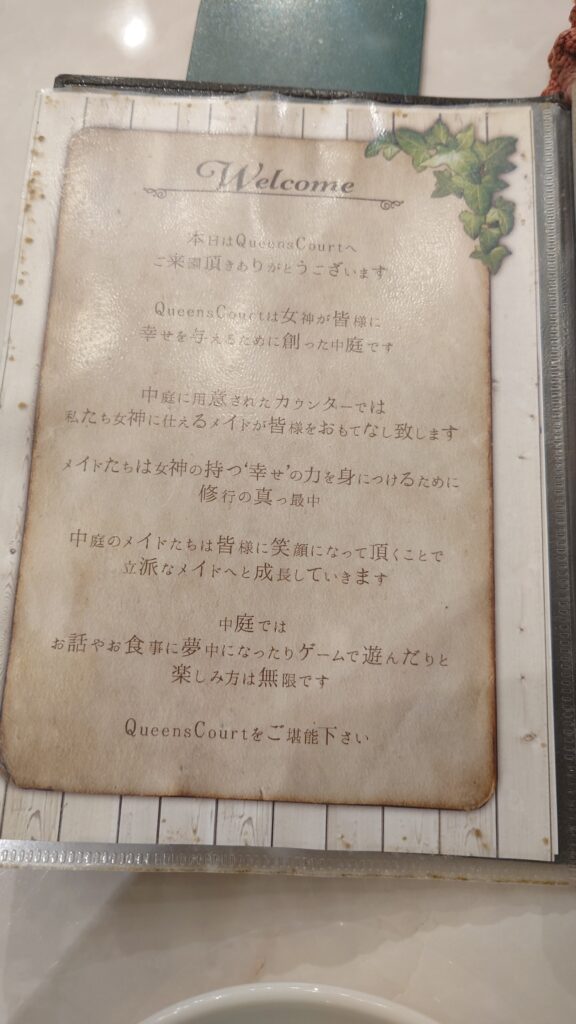 Welcome
本日はQueensCourtへ
ご来園頂きありがとうございます
QueensCourtは女神が皆様に
幸せを与えるために創った中庭です
中庭に用意されたカウンターでは
私たち女神に仕えるメイドが皆様をおもてなし致します
メイドたちは女神の持つ‘幸せ’の力を身につけるために
修行の真っ最中
中庭のメイドたちは皆様に笑顔になって頂くことで
立派なメイドへと成長していきます
中庭では
お話やお食事に夢中になったりゲームで遊んだりと
楽しみ方は無限です
QueensCourtをご堪能下さい